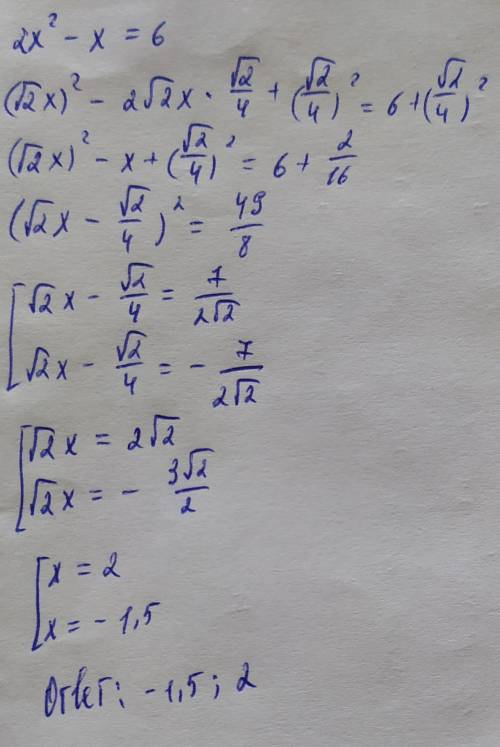 2x² - x = 6
(√2x)² - 2√2x · √2/4 + (√2/4)² = 6 + (√2/4)²
(√2x)² - x + (√2/4)² = 6 + 2/16
(√2x - √2/4)² = 49/8
[ √2x - √2/4 = 7/2√2
√2x - √2/4 = - 7/2√2
[ √2x = 2√2
√2x = - 3√2/2
[ x = 2
x = - 1,5
Ответ: -1,5; 2